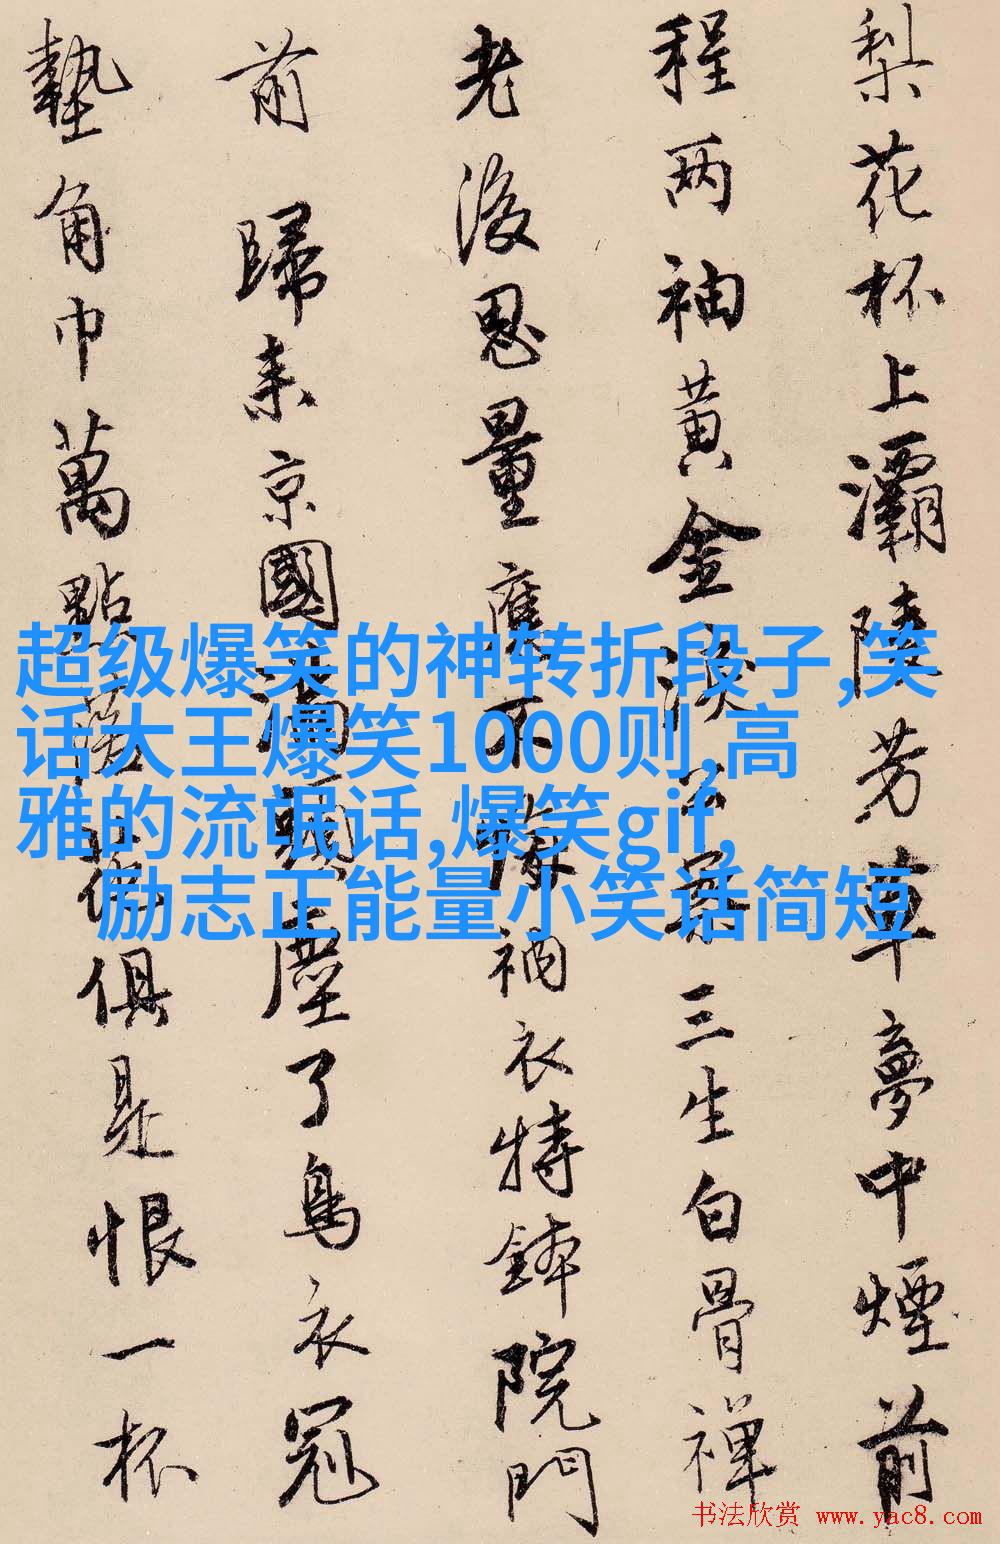 梨花杯上灞陵芳草夢中煙前
程两袖黄金淚公案三生白骨禪
老後思量應不悔衲衣持鉢院門
前 歸来京國滿頭塵了烏衣冠
墊角巾萬點落花俱是恨一杯
超级爆笑的神转折段子,笑
话大王爆笑1000则,高
雅的流氓话,爆笑gif,
励志正能量小笑话简短
书法欣赏 www.yac8.com